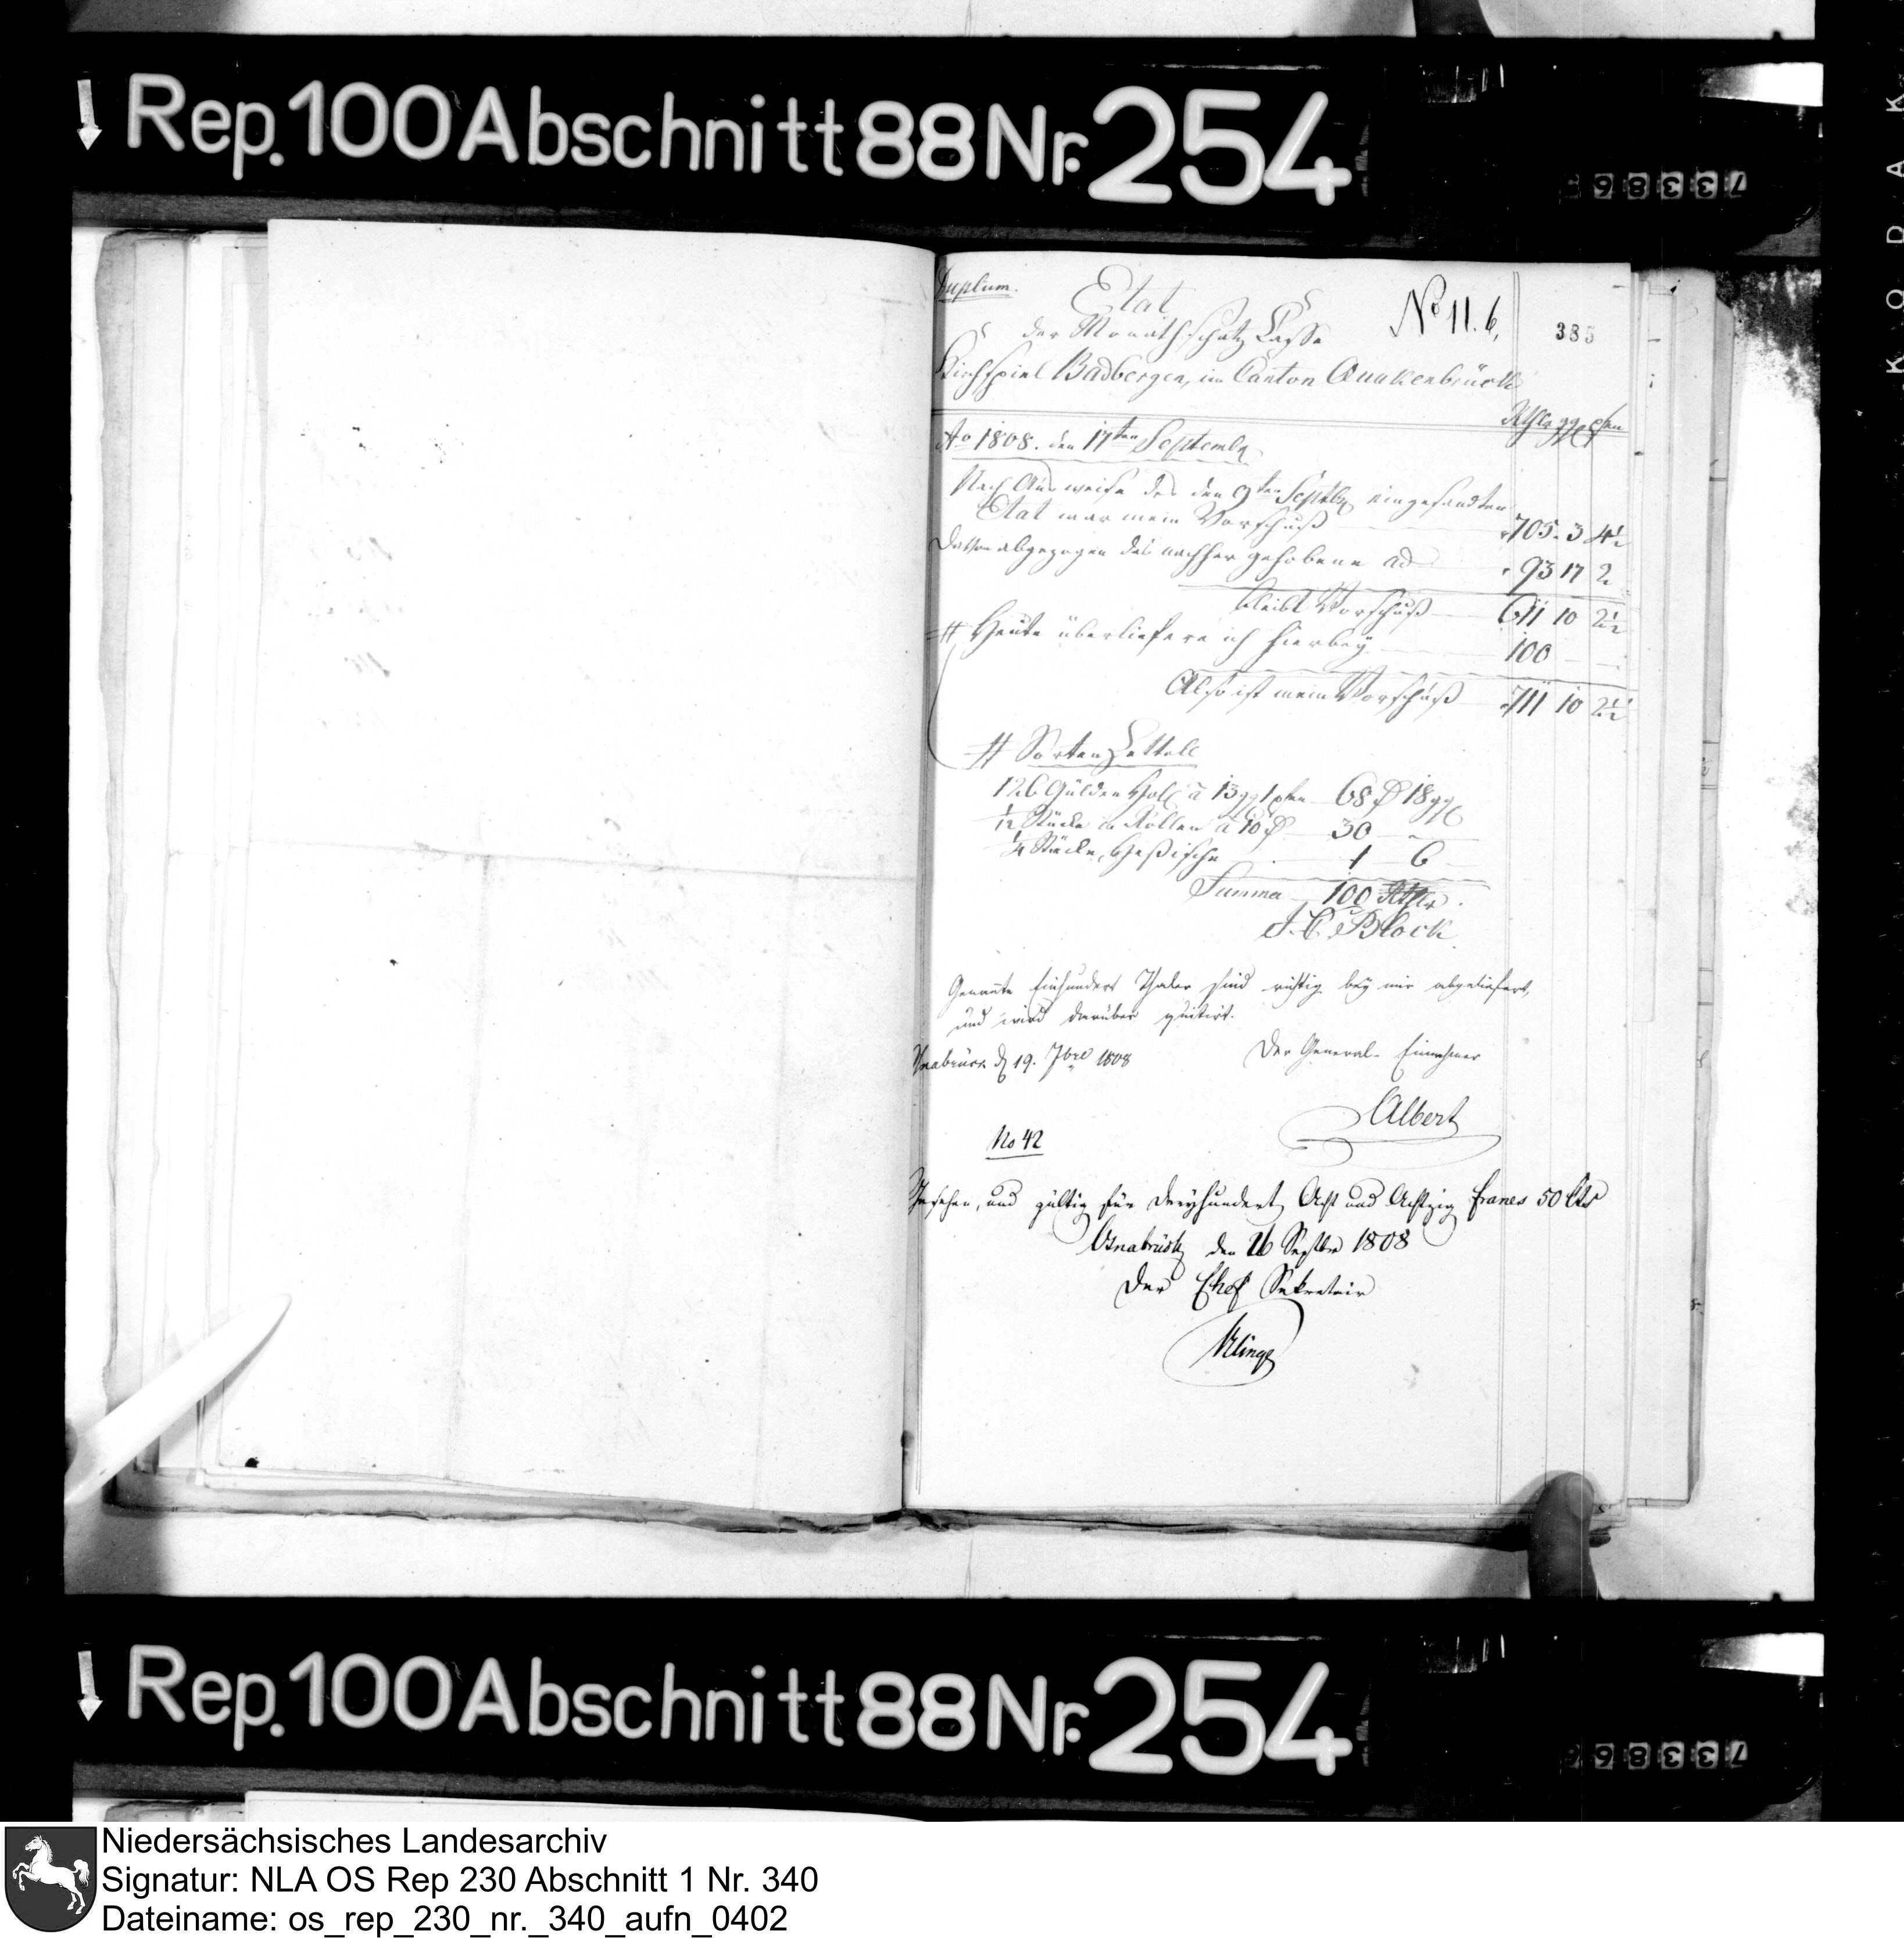 Rep. 100 Abschnitt 88 Nr. 254
733865
KODAK
Duplum.
Etat
No 11. 6.
385
der Monathschatz Casse
Kirchspiel Badbergen, im Canton Quakenbrück
Rthlr ggl pfen
Ao 1808. den 17ten Septembr
Nach Ausweise des den 9ten Septbr eingesandten
Etat war mein Vorschuß 705. 3 4½
Davon abgezogen das nachher gehobene ad 93 17 2
bleibt Vorschuß 611 10 2½
# Heute überliefere ich hierbey 100
Also ist mein Vorschuß 711 10 2½
# Sorten Zettell
126 Gülden Holl à 13 ggl 1 pfen 68 18 ggl
1/12 Stücke in Rollen à 10 30
1/4 Stücke, Heßische 1 6
Summa 100 Rthlr.
J. C. Block
Genannte Einhundert Thaler sind richtig bey mir abgeliefert,
und wird darüber quitirt.
Osnabrück d 19. 7bre 1808 Der General-Einnehmer
Albert
No 42
Gesehen, und gültig für dreyhundert Acht und Achtzig francs 50 Cts
Osnabrück den 26 Septbr 1808
Der Chef Sekretair
Klinge
Rep. 100 Abschnitt 88 Nr. 254
733866
Niedersächsisches Landesarchiv
Signatur: NLA OS Rep 230 Abschnitt 1 Nr. 340
Dateiname: os_rep_230_nr._340_aufn_0402